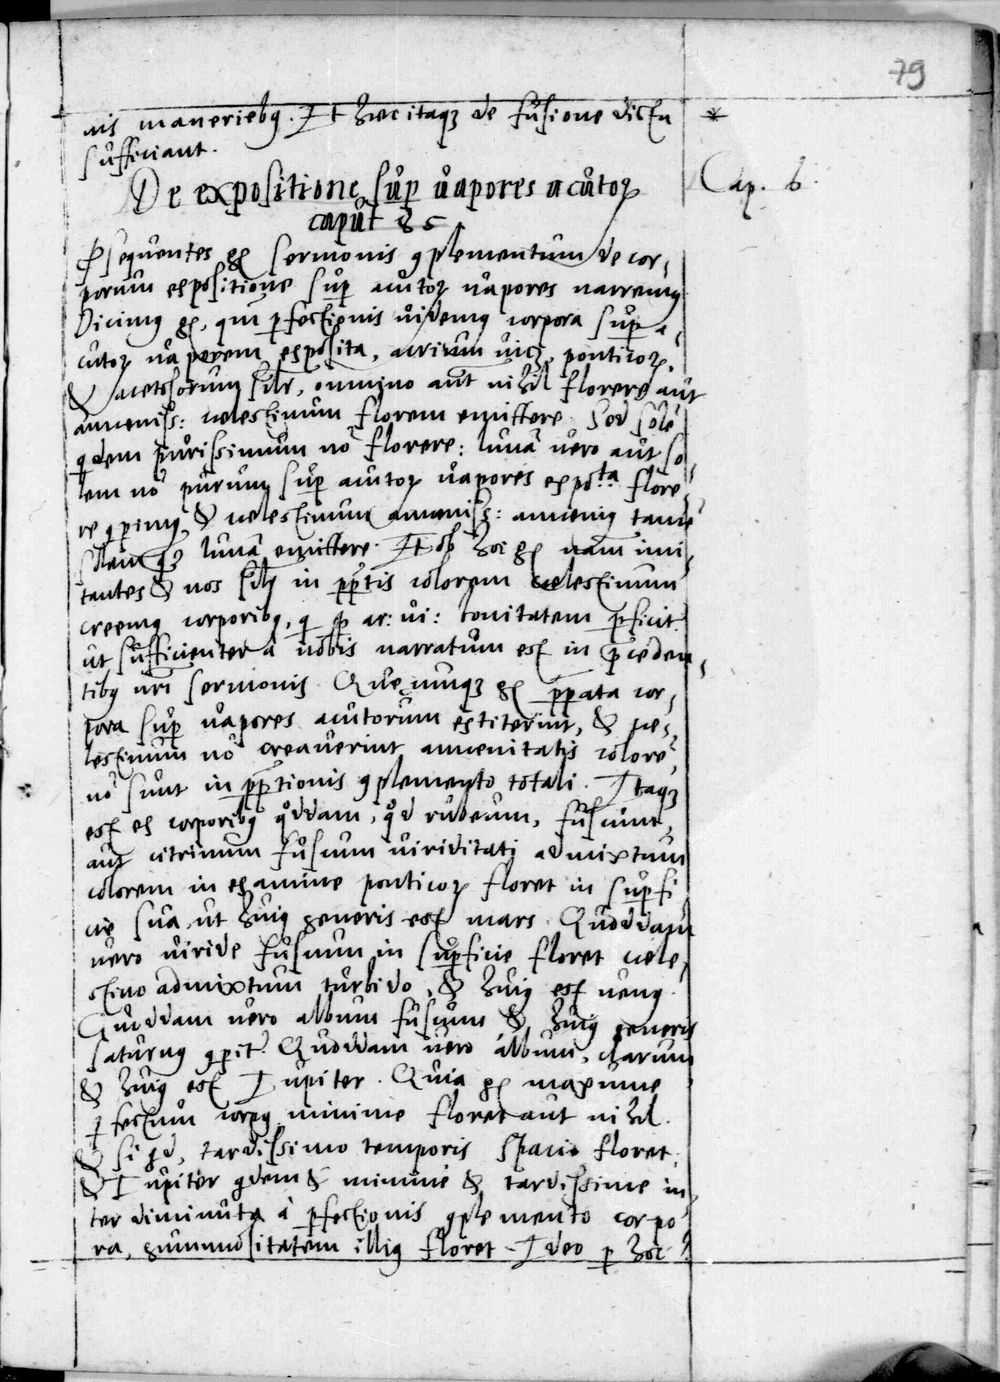 79
nis maneriebꝰ. Et hæc itaqꝫ de fusione dicta *
sufficiant.
De expositione sup̱ uapores acutoꝝ Cap. 6.
caput 85
Ꝓsequentes g̃ sermonis ꝯplementum de cor-
porum expositione sup̱ acutoꝝ uapores narremꝰ
Dicimꝰ g̃, qm̃ ꝑfectionis uidemꝰ corpora sup̱ a-
cutoꝝ uaporem exposita, acrium uicꝫ, ponticoꝝ,
& acetosorum silr, omnino aut nihil florere aut
amœniss: celestinum florem emittere. Sed solẽ
qdem purissimum nõ florere: lunã uero aut so-
lem nõ purum sup̱ acutoꝝ uapores expo.ta flore-
re ꝯperimꝰ, & celestinum amœniss: amœniꝰ tamẽ
solem qꝫ lunã emittere. Et ob hoc g̃ nam imi-
tantes & nos silr in pp̃tis colorem celestinum
creemꝰ corporibꝰ, q ꝑ ar: ui: bonitatem ꝑficit
ut sufficienter à nobis narratum est in p̃ceden-
tibꝰ nri sermonis. Quecunqꝫ g̃ pp̃ata cor-
pora sup̱ uapores acutorum extiterint, & ce-
lestinum nõ creauerint amœnitatis colorẽ,
nõ sunt in pp̃tionis ꝯplemento totali. Itaqꝫ
est ex corporibꝰ qddam, qd rubeum, fuscum,
aut citrinum fuscum uiriditati admixtum
colorem in examine ponticoꝝ floret in sup̱fi-
cie sua, ut huiꝰ generis est mars. Quoddam
uero uiride fuscum in sup̱ficie floret cele-
stino admixtum turbido, & huiꝰ est uenꝰ.
Quoddam uero album fuscum & huiꝰ generis
saturnꝰ ꝯperit. Quoddam uero album, clarum
& huiꝰ est Iupiter. Quia g̃ maxime
ꝑfectum corpꝰ minime floret aut nihil.
& si qd, tardissimo temporis spacio floret.
& Iupiter qdem & minime & tardissime in-
ter diminuta à ꝑfectionis ꝯplemento corpo-
ra, gummositatem illiꝰ floret. Ideo ꝑ hoc